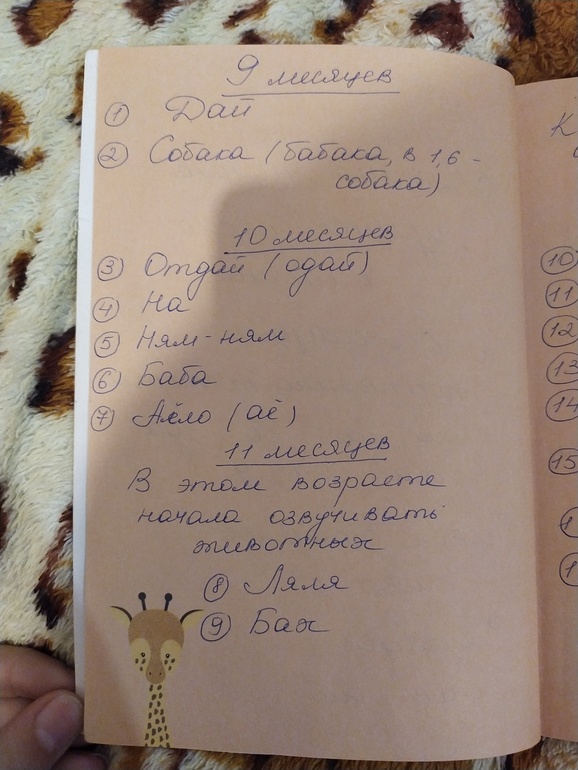 9 месяцев
① Дай
② Собака (бабака, в 1,6 -
собака)
10 месяцев
③ Отдай (одай)
④ На
⑤ Ням-ням
⑥ Баба
⑦ Алло (аё)
11 месяцев
В этом возрасте
начала озвучивать
животных
⑧ Ляля
⑨ Бах
К
10
11
12
13
14
15
1
1